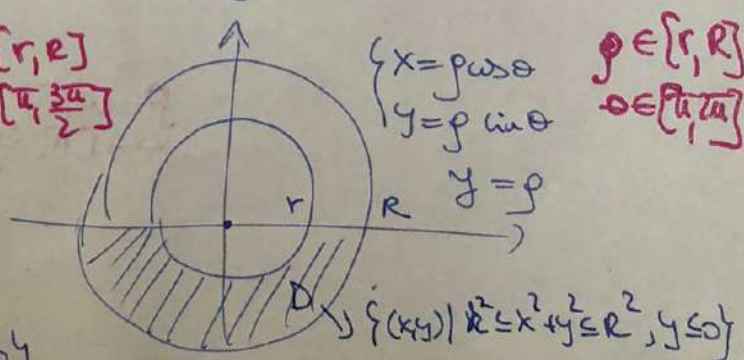 [r, R]
[π, 3π/2]
{ x = ρ cos θ
y = ρ sin θ
y = ρ
ρ ∈ [r, R]
θ ∈ [π, 2π]
r
R
D
{(x,y) | r² ≤ x² + y² ≤ R², y ≤ 0}